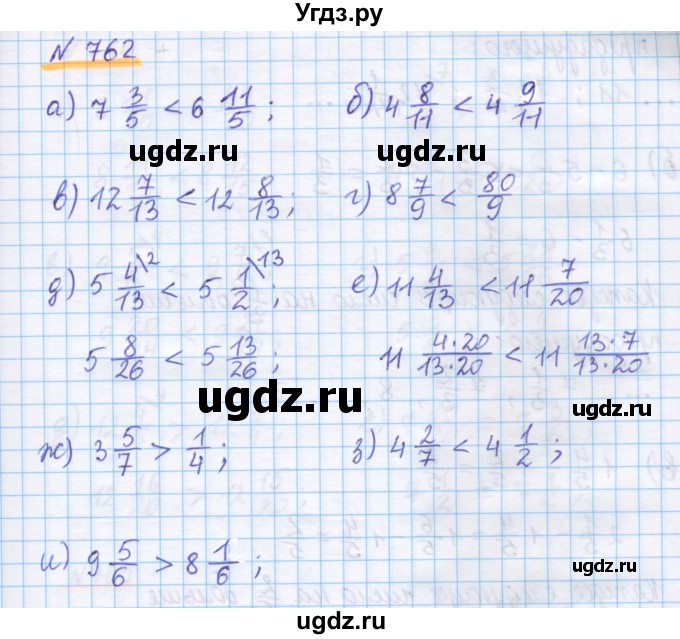 Угдз.ру
N 762
а) 7 3/5 < 6 11/5 ; б) 4 8/11 < 4 9/11
ugdz.ru ugdz.ru
в) 12 7/13 < 12 8/13 ; г) 8 7/9 < 80/9
д) 5 4/13 \2 < 5 1/2 \13 е) 11 4/13 < 11 7/20
5 8/26 < 5 13/26 ; 11 4·20/13·20 < 11 13·7/13·20
ugdz.ru ugdz.ru
ж) 3 5/7 > 1/4 ; з) 4 2/7 < 4 1/2 ;
и) 9 5/6 > 8 1/6 ;